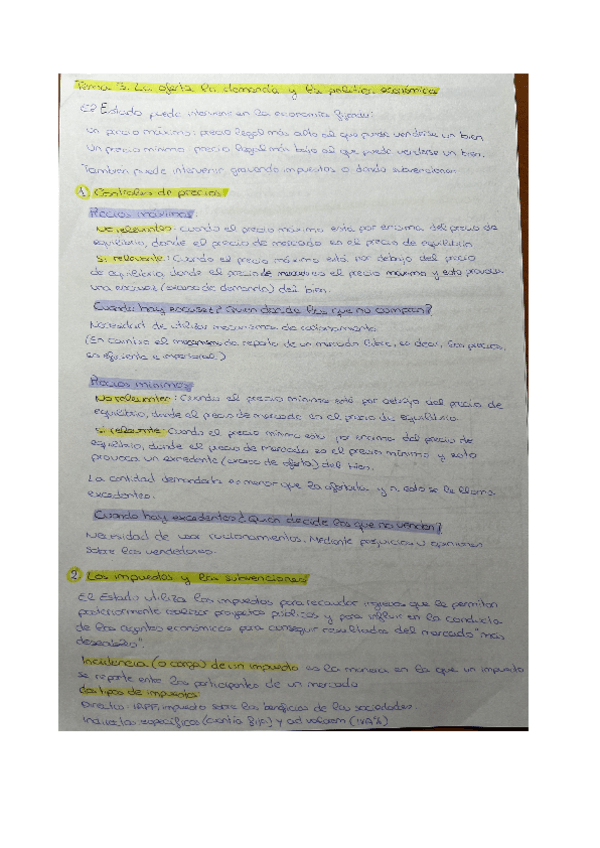 Tema 3. La oferta la demanda y la política económica
El Estado puede intervenir en la economía fijando:
Un precio máximo: precio legal más alto al que puede venderse un bien
Un precio mínimo: precio legal más bajo al que puede venderse un bien.
También puede intervenir gravando impuestos o dando subvenciones
1 Controles de precios
Precios máximos:
No relevantes: cuando el precio máximo está por encima del precio de
equilibrio, donde el precio de mercado en el precio de equilibrio
Si relevante: Cuando el precio máximo está por debajo del precio
de equilibrio donde el precio de mercado es el precio máximo y esto provoca
una escasez (exceso de demanda) del bien.
Cuando hay escasez ¿Quien decide los que no compran?
Necesidad de utilizar mecanismos de racionamiento
(En cambio el mecanismo de reparto de un mercado libre, es decir, los precios,
es eficiente e impersonal.)
Precios mínimos
No relevantes: Cuando el precio mínimo está por debajo del precio de
equilibrio, donde el precio de mercado en el precio de equilibrio.
Si relevante: Cuando el precio mínimo está por encima del precio de
equilibrio, donde el precio de mercado es el precio mínimo y esto
provoca un excedente (exceso de oferta) del bien.
La cantidad demandada es menor que la ofertada y a esto se le llama
excedentes.
Cuando hay excedentes ¿Quien decide los que no venden?
Necesidad de usar racionamientos. Mediante prejuicios u opiniones
sobre los vendedores.
2 Los impuestos y las subvenciones
El Estado utiliza los impuestos para recaudar ingresos que le permitan
posteriormente realizar proyectos públicos y para influir en la conducta
de los agentes económicos para conseguir resultados del mercado "más
deseables".
Incidencia (o carga) de un impuesto es la manera en la que un impuesto
se reparte entre los participantes de un mercado
dos tipos de impuestos:
Directos: IRPF, impuesto sobre los beneficios de las sociedades.
Indirectos: específicos (cuantía fija) y ad valorem (IVA%)